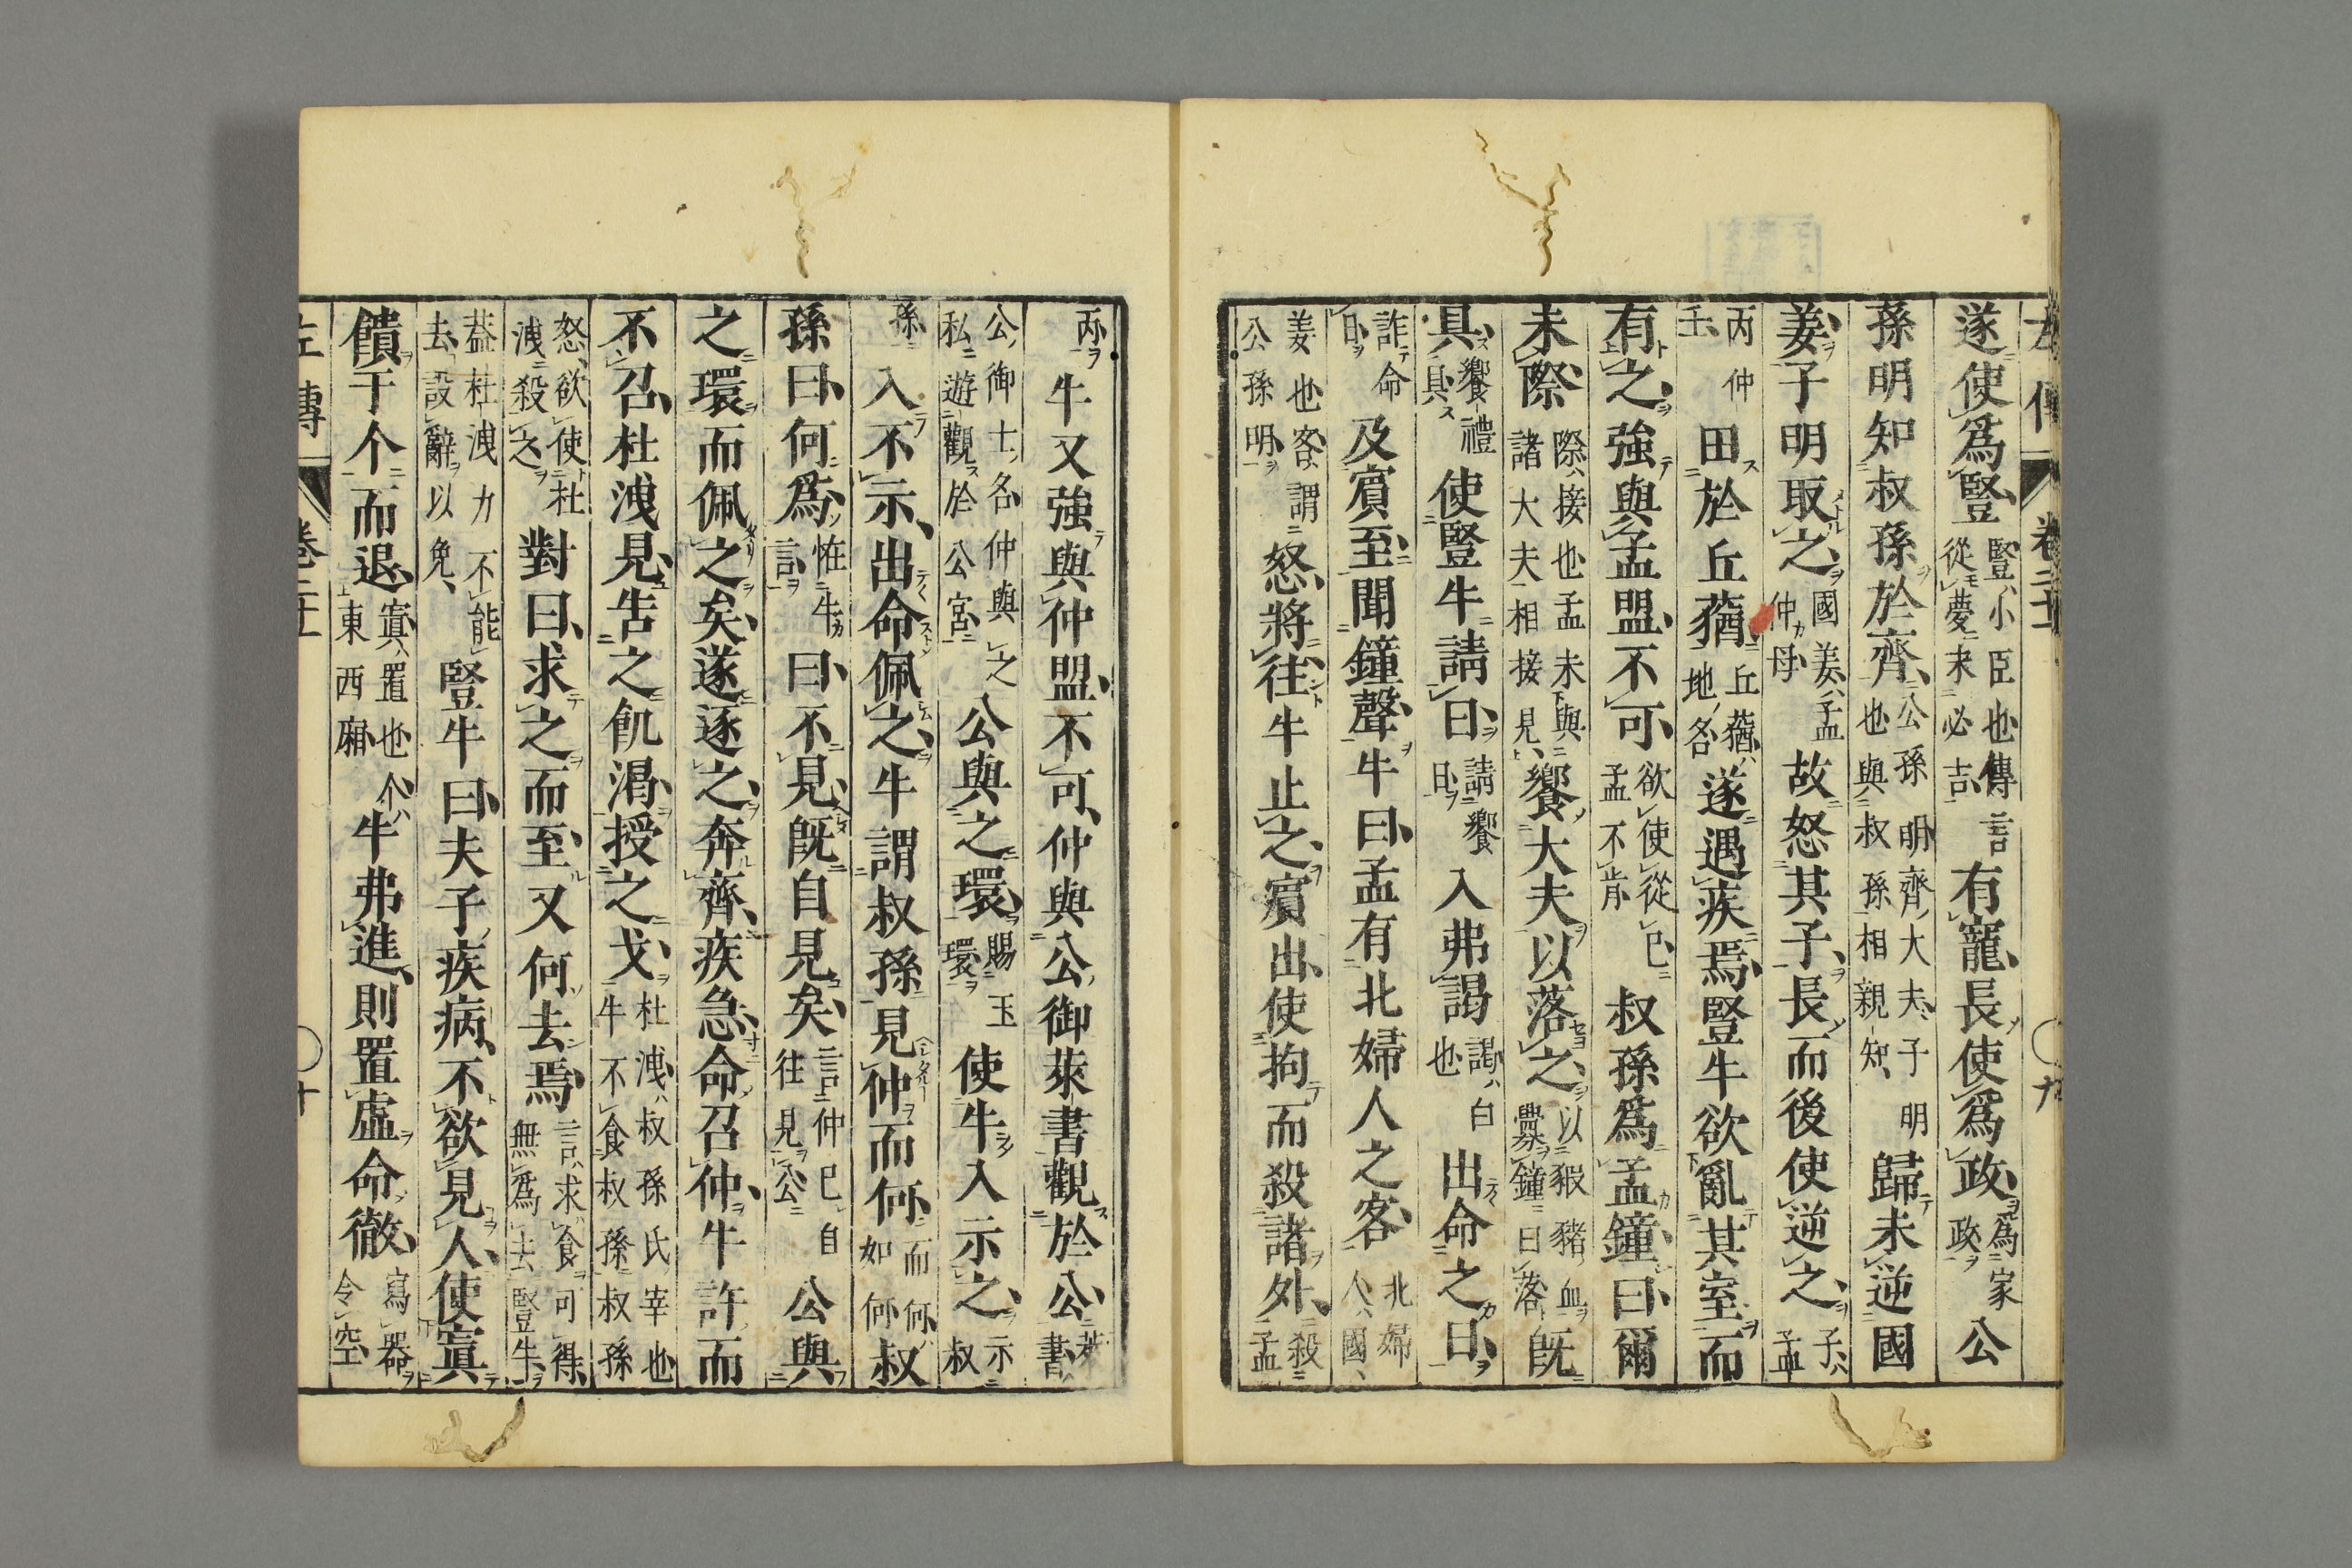 遂使爲豎豎小臣也傳言從夢未必吉有寵長使爲政爲家政公
孫明知叔孫於齊公孫明齊大夫子明也與叔孫相親知歸未逆國
姜子明取之國姜孟仲母故怒其子長而後使逆之子孟
丙仲壬田於丘蕕丘蕕地名遂遇疾焉豎牛欲亂其室而
有之強與孟盟不可欲使從己孟不肯叔孫爲孟鐘曰爾
未際際接也孟未與諸大夫相接見饗大夫以落之以豭豬血釁鐘曰落既
具饗禮具使豎牛請曰請饗日入弗謁謁白也出命之日
詐命日及賓至聞鐘聲牛曰孟有北婦人之客北婦人國
姜也客謂公孫明怒將往牛止之賓出使拘而殺諸外殺孟
丙牛又強與仲盟不可仲與公御萊書觀於公萊書
公御士名仲與之私遊觀於公宮公與之環賜玉環使牛入示之示叔
孫入不示出命佩之牛謂叔孫見仲而何而何如何叔
孫曰何爲怪牛言曰不見既自見矣言仲已自往見公公與
之環而佩之矣遂逐之奔齊疾急命召仲牛許而
不召杜洩見告之飢渴授之戈杜洩叔孫氏宰也牛不食叔孫叔孫
怒欲使杜洩殺之對曰求之而至又何去焉言求食可得無爲去豎牛
蓋杜洩力不能去設辭以免豎牛曰夫子疾病不欲見人使寘
饋于个而退寘置也个東西廂牛弗進則置虛命徹寫器令空
左傳
卷二十